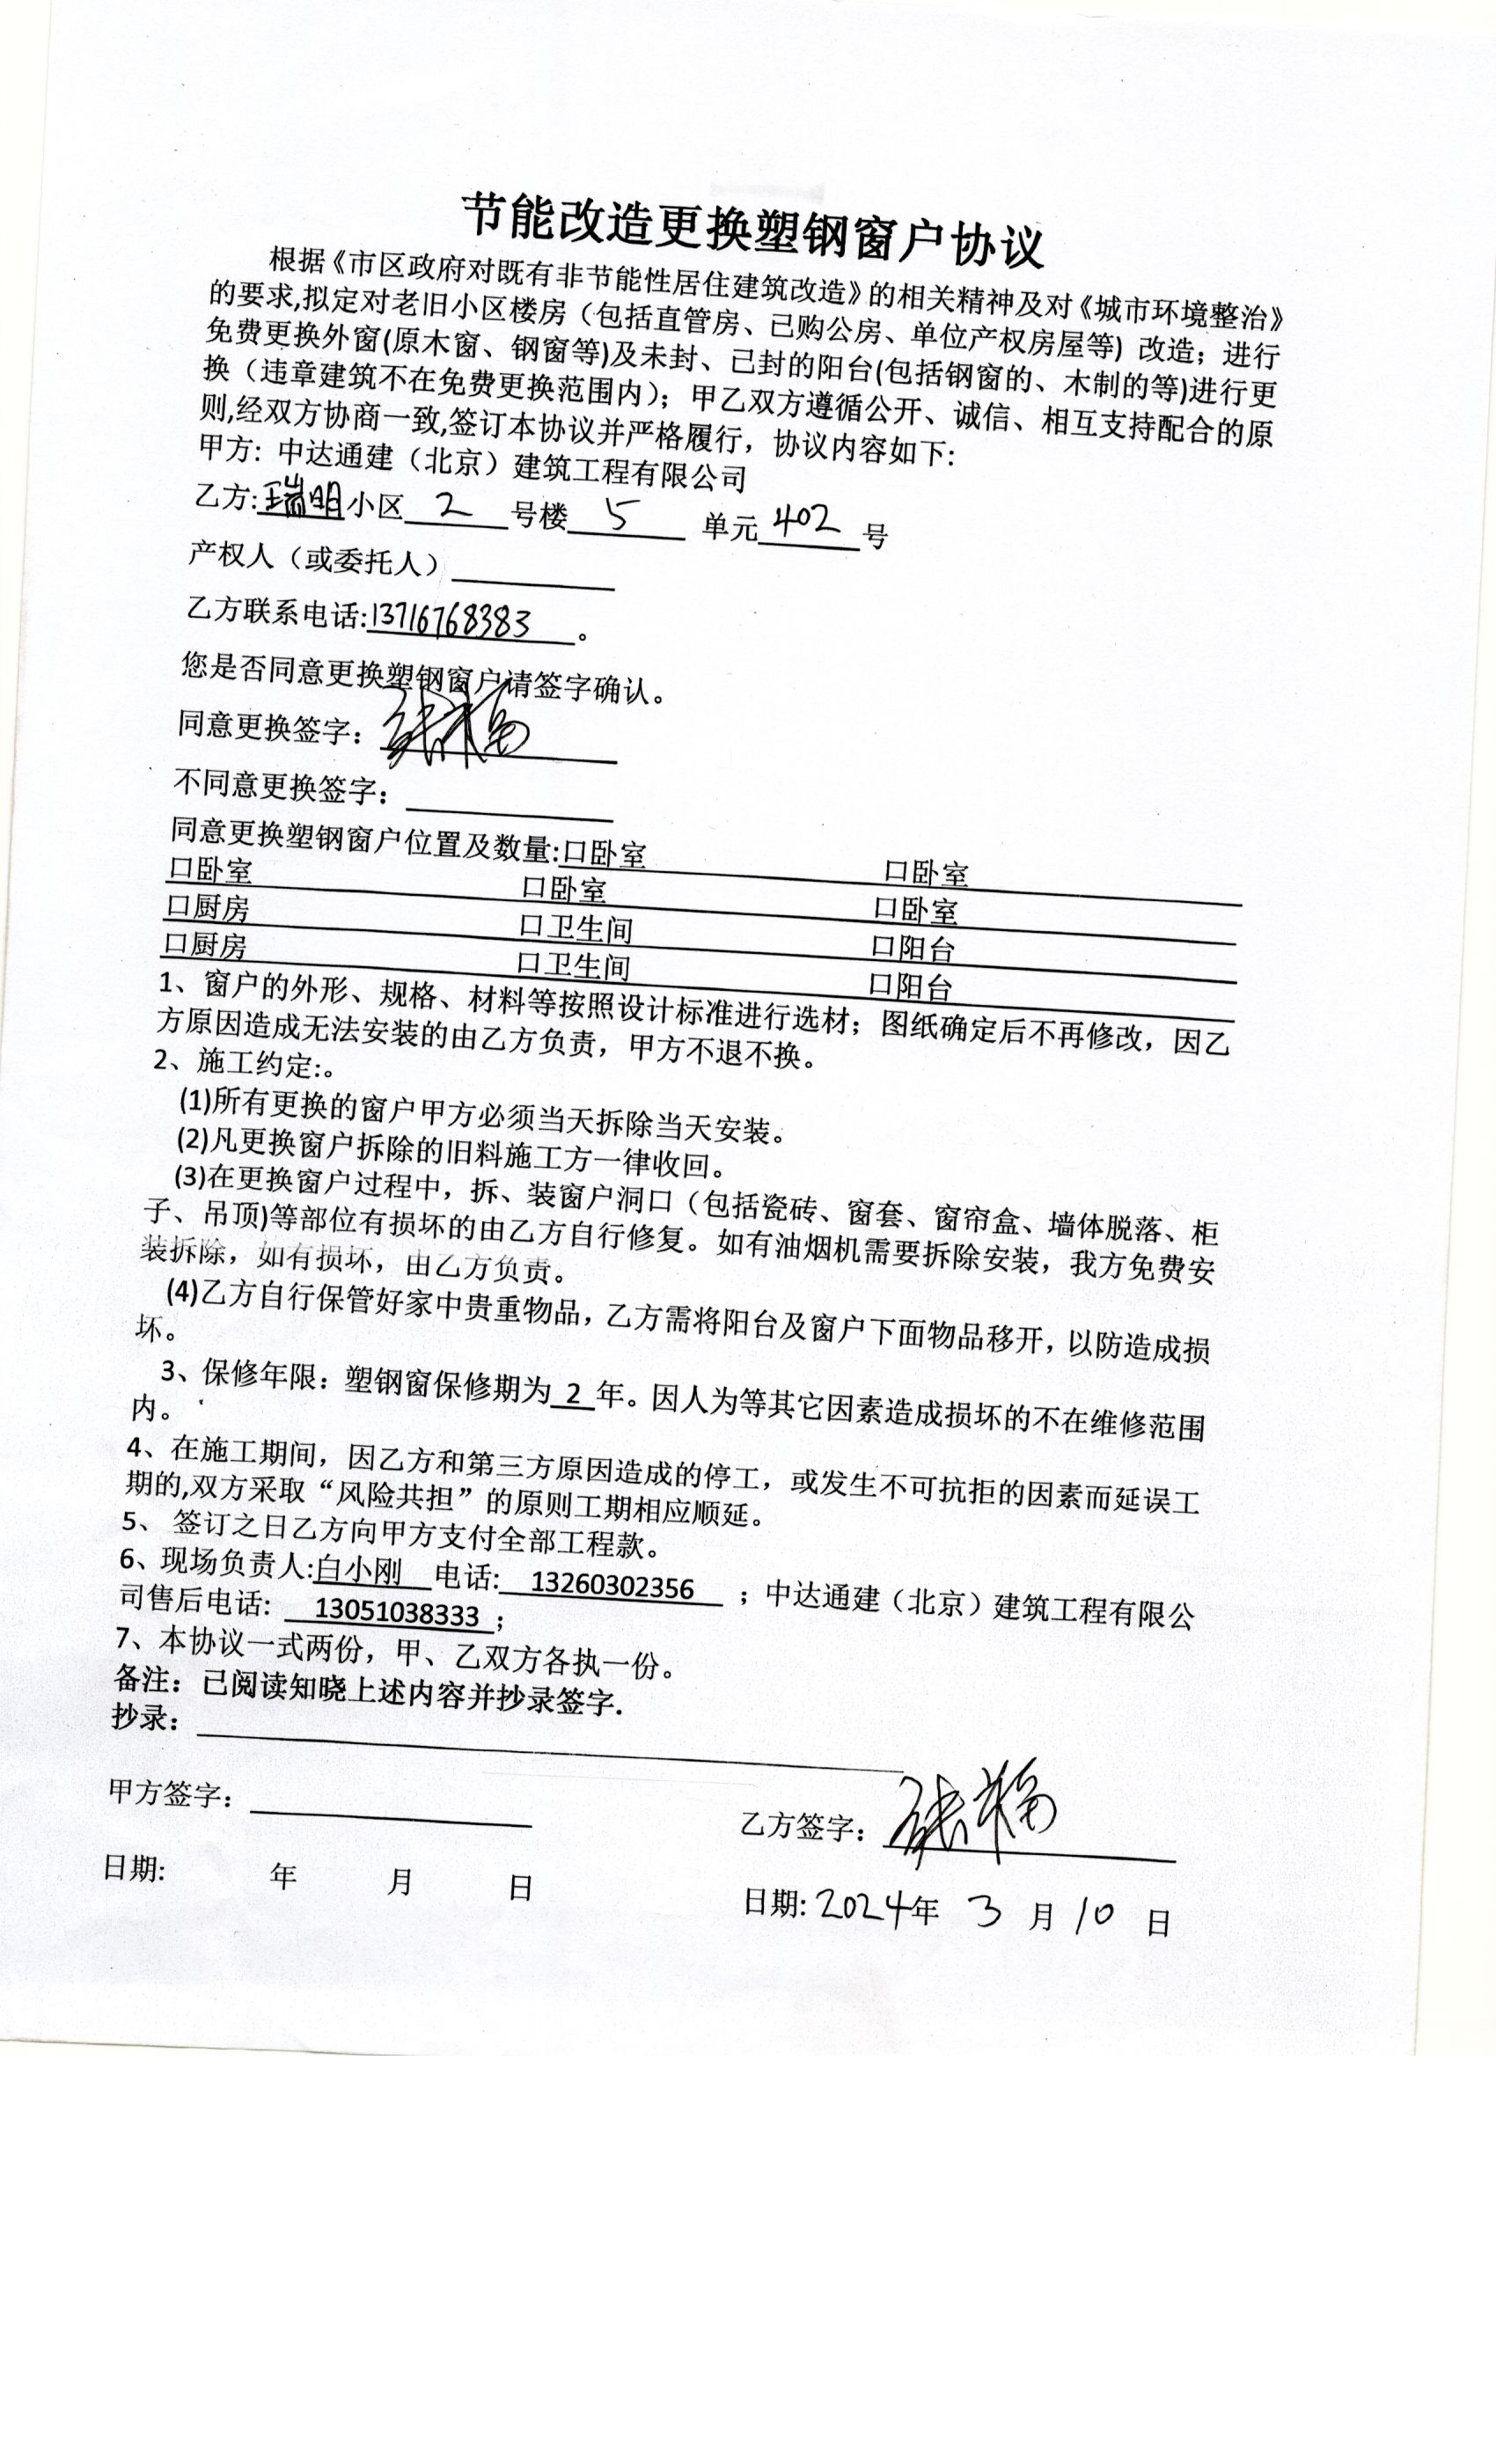 节能改造更换塑钢窗户协议
根据《市区政府对既有非节能性居住建筑改造》的相关精神及对《城市环境整治》
的要求,拟定对老旧小区楼房（包括直管房、已购公房、单位产权房屋等）改造；进行
免费更换外窗(原木窗、钢窗等)及未封、已封的阳台(包括钢窗的、木制的等)进行更
换（违章建筑不在免费更换范围内）；甲乙双方遵循公开、诚信、相互支持配合的原
则,经双方协商一致,签订本协议并严格履行，协议内容如下：
甲方：中达通建（北京）建筑工程有限公司
乙方:瑞明小区 2 号楼 5 单元 402 号
产权人（或委托人）
乙方联系电话:13716768383。
您是否同意更换塑钢窗户请签字确认。
同意更换签字：
不同意更换签字：
同意更换塑钢窗户位置及数量:口卧室 口卧室
口卧室 口卧室 口卧室
口厨房 口卫生间 口阳台
口厨房 口卫生间 口阳台
1、窗户的外形、规格、材料等按照设计标准进行选材；图纸确定后不再修改，因乙
方原因造成无法安装的由乙方负责，甲方不退不换。
2、施工约定:。
(1)所有更换的窗户甲方必须当天拆除当天安装。
(2)凡更换窗户拆除的旧料施工方一律收回。
(3)在更换窗户过程中，拆、装窗户洞口（包括瓷砖、窗套、窗帘盒、墙体脱落、柜
子、吊顶)等部位有损坏的由乙方自行修复。如有油烟机需要拆除安装，我方免费安
装拆除，如有损坏，由乙方负责。
(4)乙方自行保管好家中贵重物品，乙方需将阳台及窗户下面物品移开，以防造成损
坏。
3、保修年限：塑钢窗保修期为 2 年。因人为等其它因素造成损坏的不在维修范围
内。
4、在施工期间，因乙方和第三方原因造成的停工，或发生不可抗拒的因素而延误工
期的,双方采取“风险共担”的原则工期相应顺延。
5、 签订之日乙方向甲方支付全部工程款。
6、现场负责人:白小刚 电话: 13260302356 ；中达通建（北京）建筑工程有限公
司售后电话: 13051038333；
7、本协议一式两份，甲、乙双方各执一份。
备注：已阅读知晓上述内容并抄录签字.
抄录：
甲方签字： 乙方签字：
日期: 年 月 日 日期: 2024年 3 月 10 日